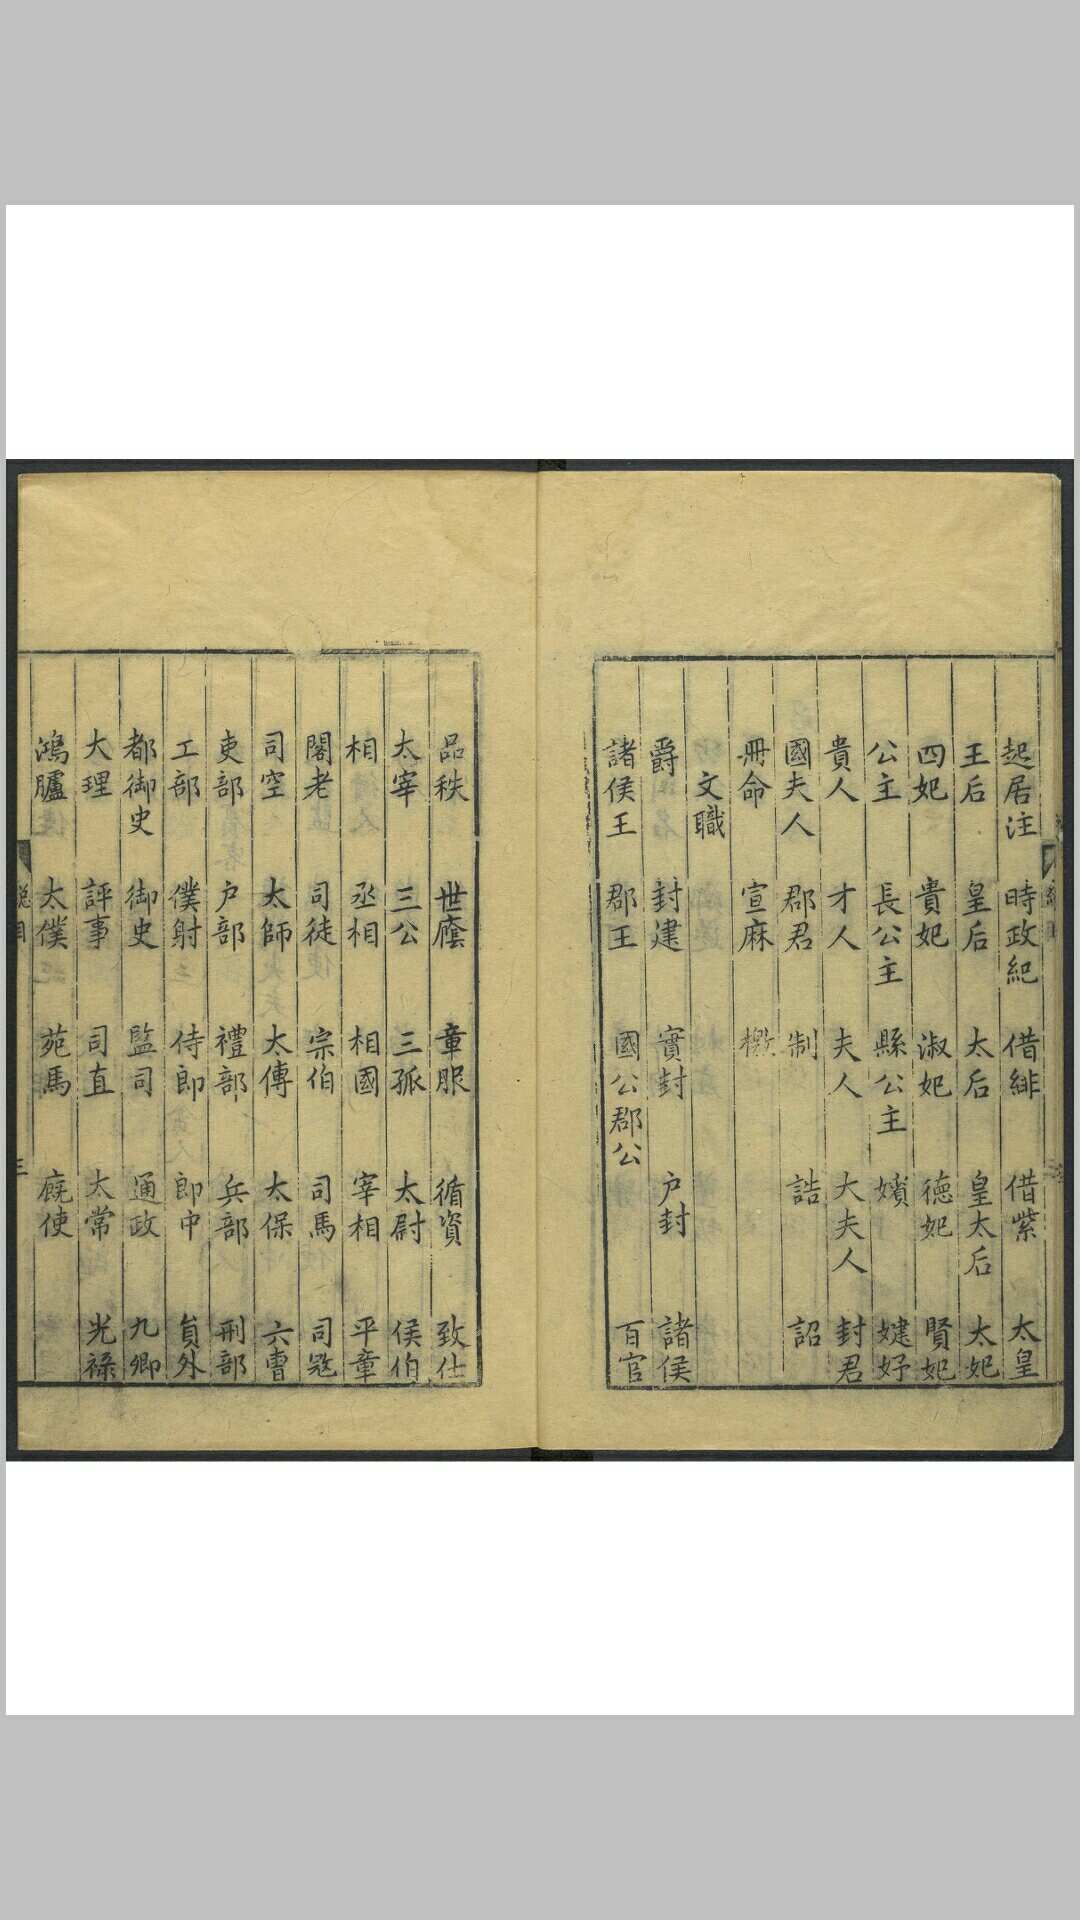 起居注 時政紀 借緋 借紫 太皇
王后 皇后 太后 皇太后 太妃
四妃 貴妃 淑妃 德妃 賢妃
公主 長公主 縣公主 嬪 婕妤
貴人 才人 夫人 大夫人 封君
國夫人 郡君 制 誥 詔
冊命 宣麻 檄
文職
爵 封建 實封 户封 諸侯
諸侯王 郡王 國公郡公 百官
品秩 世廕 章服 循資 致仕
太宰 三公 三孤 太尉 侯伯
相 丞相 相國 宰相 平章
閣老 司徒 宗伯 司馬 司寇
司空 太師 太傅 太保 六曹
吏部 户部 禮部 兵部 刑部
工部 僕射 侍郎 郎中 員外
都御史 御史 監司 通政 九卿
大理 評事 司直 太常 光祿
鴻臚 太僕 苑馬 廐使
三